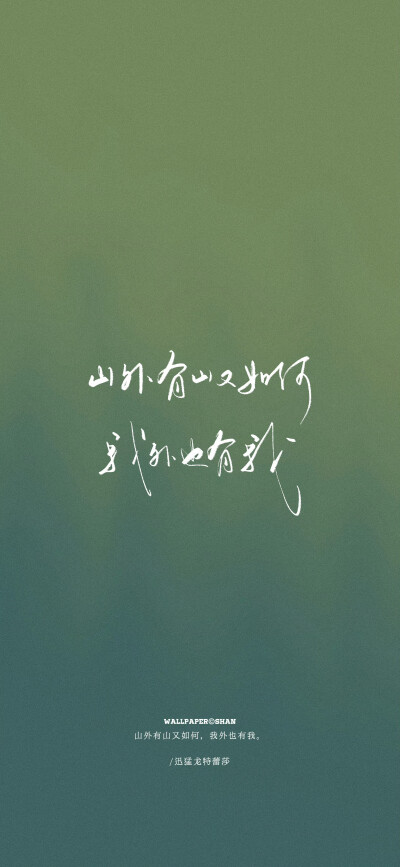 山外有山又如何
我外也有我
WALLPAPER©SHAN
山外有山又如何，我外也有我。
/迅猛龙特蕾莎